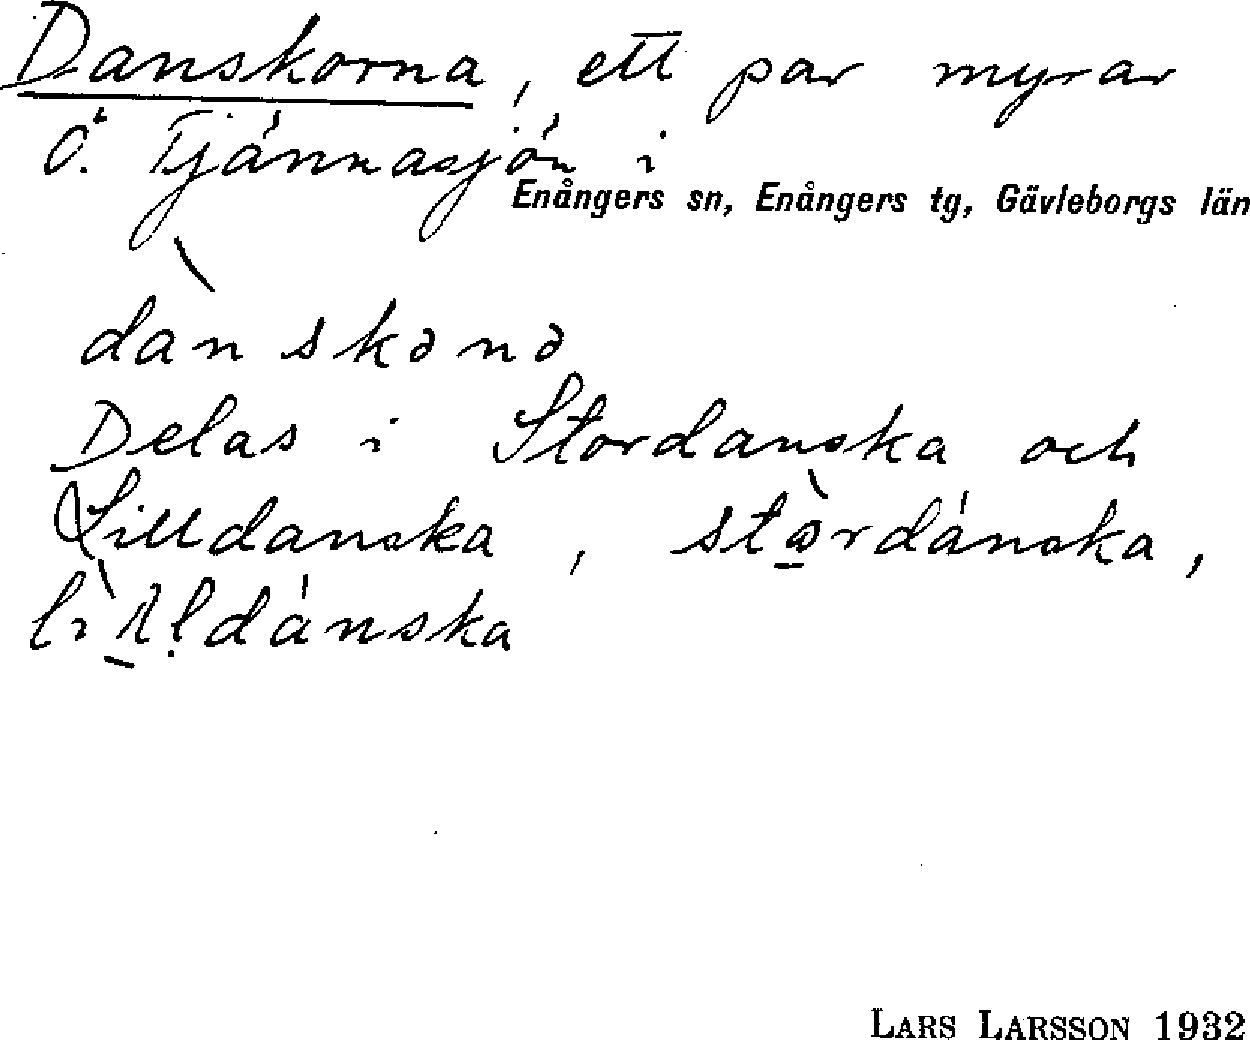 Danskorna, ett par myrar
Ö. Tjännasjön i
Enångers sn, Enångers tg, Gävleborgs län
dànskənə
Delas i Stordanska och
Lilldanska, stòrdánska,
lìl̲ḷdánska
LARS LARSSON 1932